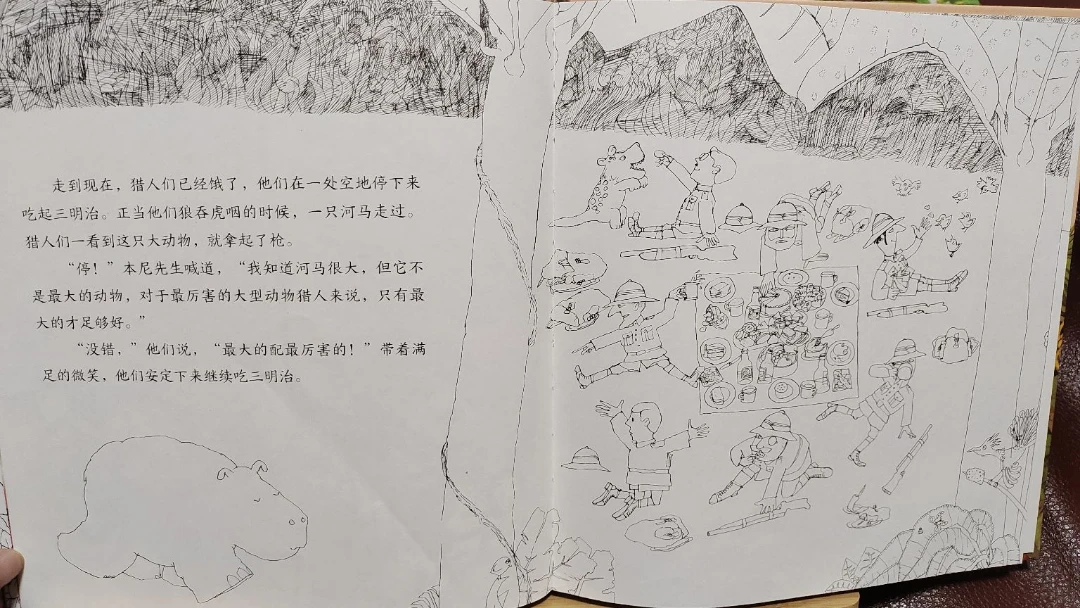 走到现在，猎人们已经饿了，他们在一处空地停下来
吃起三明治。正当他们狼吞虎咽的时候，一只河马走过。
猎人们一看到这只大动物，就拿起了枪。
“停！”本尼先生喊道，“我知道河马很大，但它不
是最大的动物，对于最厉害的大型动物猎人来说，只有最
大的才足够好。”
“没错，”他们说，“最大的配最厉害的！”带着满
足的微笑，他们安定下来继续吃三明治。